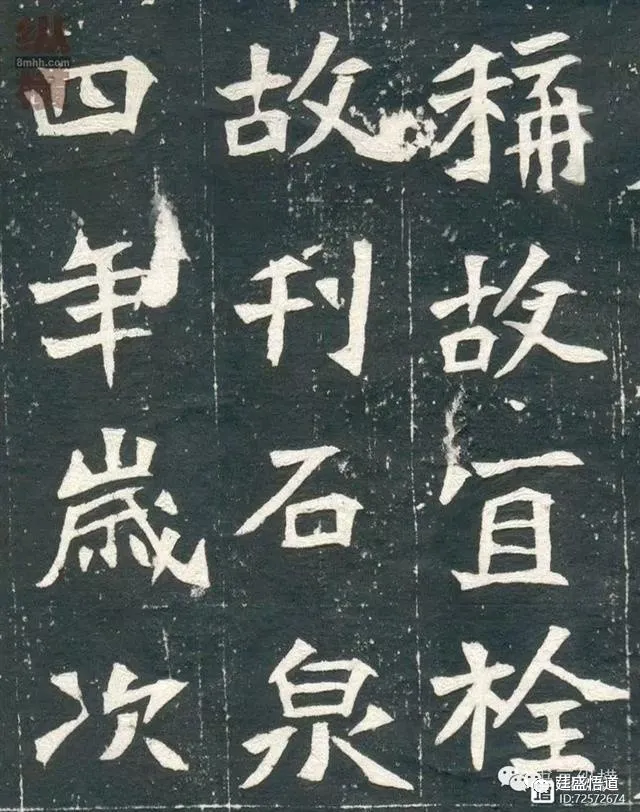 稱故宜栓
故刊石泉
四年歲次
8mhh.com
廷盛悟道
ID:72572674